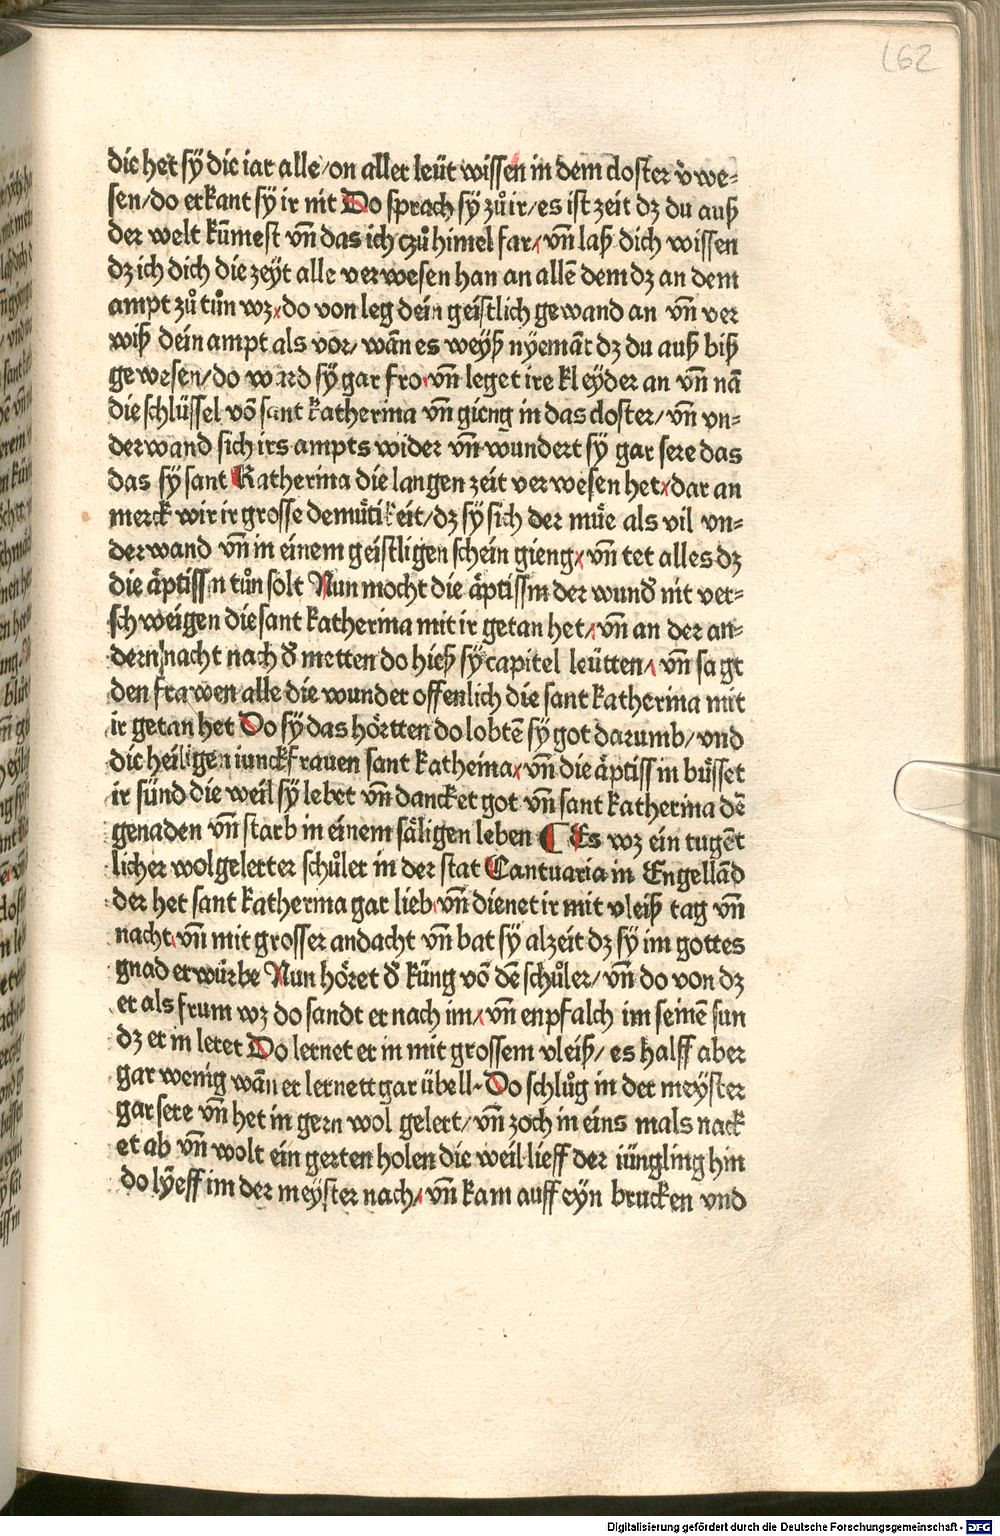 162
die het sÿ die iar alle/on aller leüt wissen in dem closter v̈we⸗
sen/do erkant sÿ ir nit Do sprach sÿ zůir/es ist zeit dz du auß
der welt kūmest vn̄ das ich czů himel far/vn̄ laß dich wissen
dz ich dich die zeÿt alle verwesen han an allē dem dz an dem
ampt zů tůn wz/do von leg dein geistlich gewand an vn̄ ver
wiß dein ampt als vor/wān es weÿß nÿemāt dz du auß biß
gewesen/do ward sÿ gar fro/vn̄ leget ire kleÿder an vn̄ nā
die schlüssel vō sant katherina vn̄ gieng in das closter/vn̄ vn⸗
derwand sich irs ampts wider vn̄ wundert sÿ gar sere das
das sÿ sant Katherina die langen zeit verwesen het/dar an
merck wir ir grosse demuͤtikeit/dz sÿ sich der muͤe als vil vn⸗
derwand vn̄ in einem geistligen schein gieng/vn̄ tet alles dz
die aͤptissin tůn solt Nun mocht die aͤptissin der wunđ nit ver⸗
schweigen die sant katherina mit ir getan het/vn̄ an der an⸗
dern nacht nach đ metten do hieß sÿ capitel leütten/vn̄ sagt
den frawen alle die wunder offenlich die sant katherina mit
ir getan het Do sÿ das hoͤrtten do lobtē sÿ got darumb/vnd
die heiligen iunckfrauen sant katheina/vn̄ die aͤptissin buͤsset
ir sünd die weil sÿ lebet vn̄ dancket got vn̄ sant katherina dē
genaden vn̄ starb in einem saͤligen leben ¶ Es wz ein tugēt
licher wolgelerter schůler in der stat Cantuaria in Engellād
der het sant katherina gar lieb/vn̄ dienet ir mit vleiß tag vn̄
nacht/vn̄ mit grosser andacht vn̄ bat sÿ alzeit dz sÿ im gottes
gnad erwürbe Nun hoͤret đ küng vō dē schůler/vn̄ do von dz
er als frum wz do sandt er nach im/vn̄ enpfalch im seinē sun
dz er in leret Do lernet er in mit grossem vleiß/es halff aber
gar wenig wān er lernett gar übell Do schlůg in der meÿster
gar sere vn̄ het in gern wol gelert/vn̄ zoch in eins mals nack
et ab vn̄ wolt ein gerten holen die weil lieff der iüngling hin
do lÿeff im der meÿster nach/vn̄ kam auff eÿn brucken vnd
Digitalisierung gefördert durch die Deutsche Forschungsgemeinschaft - DFG